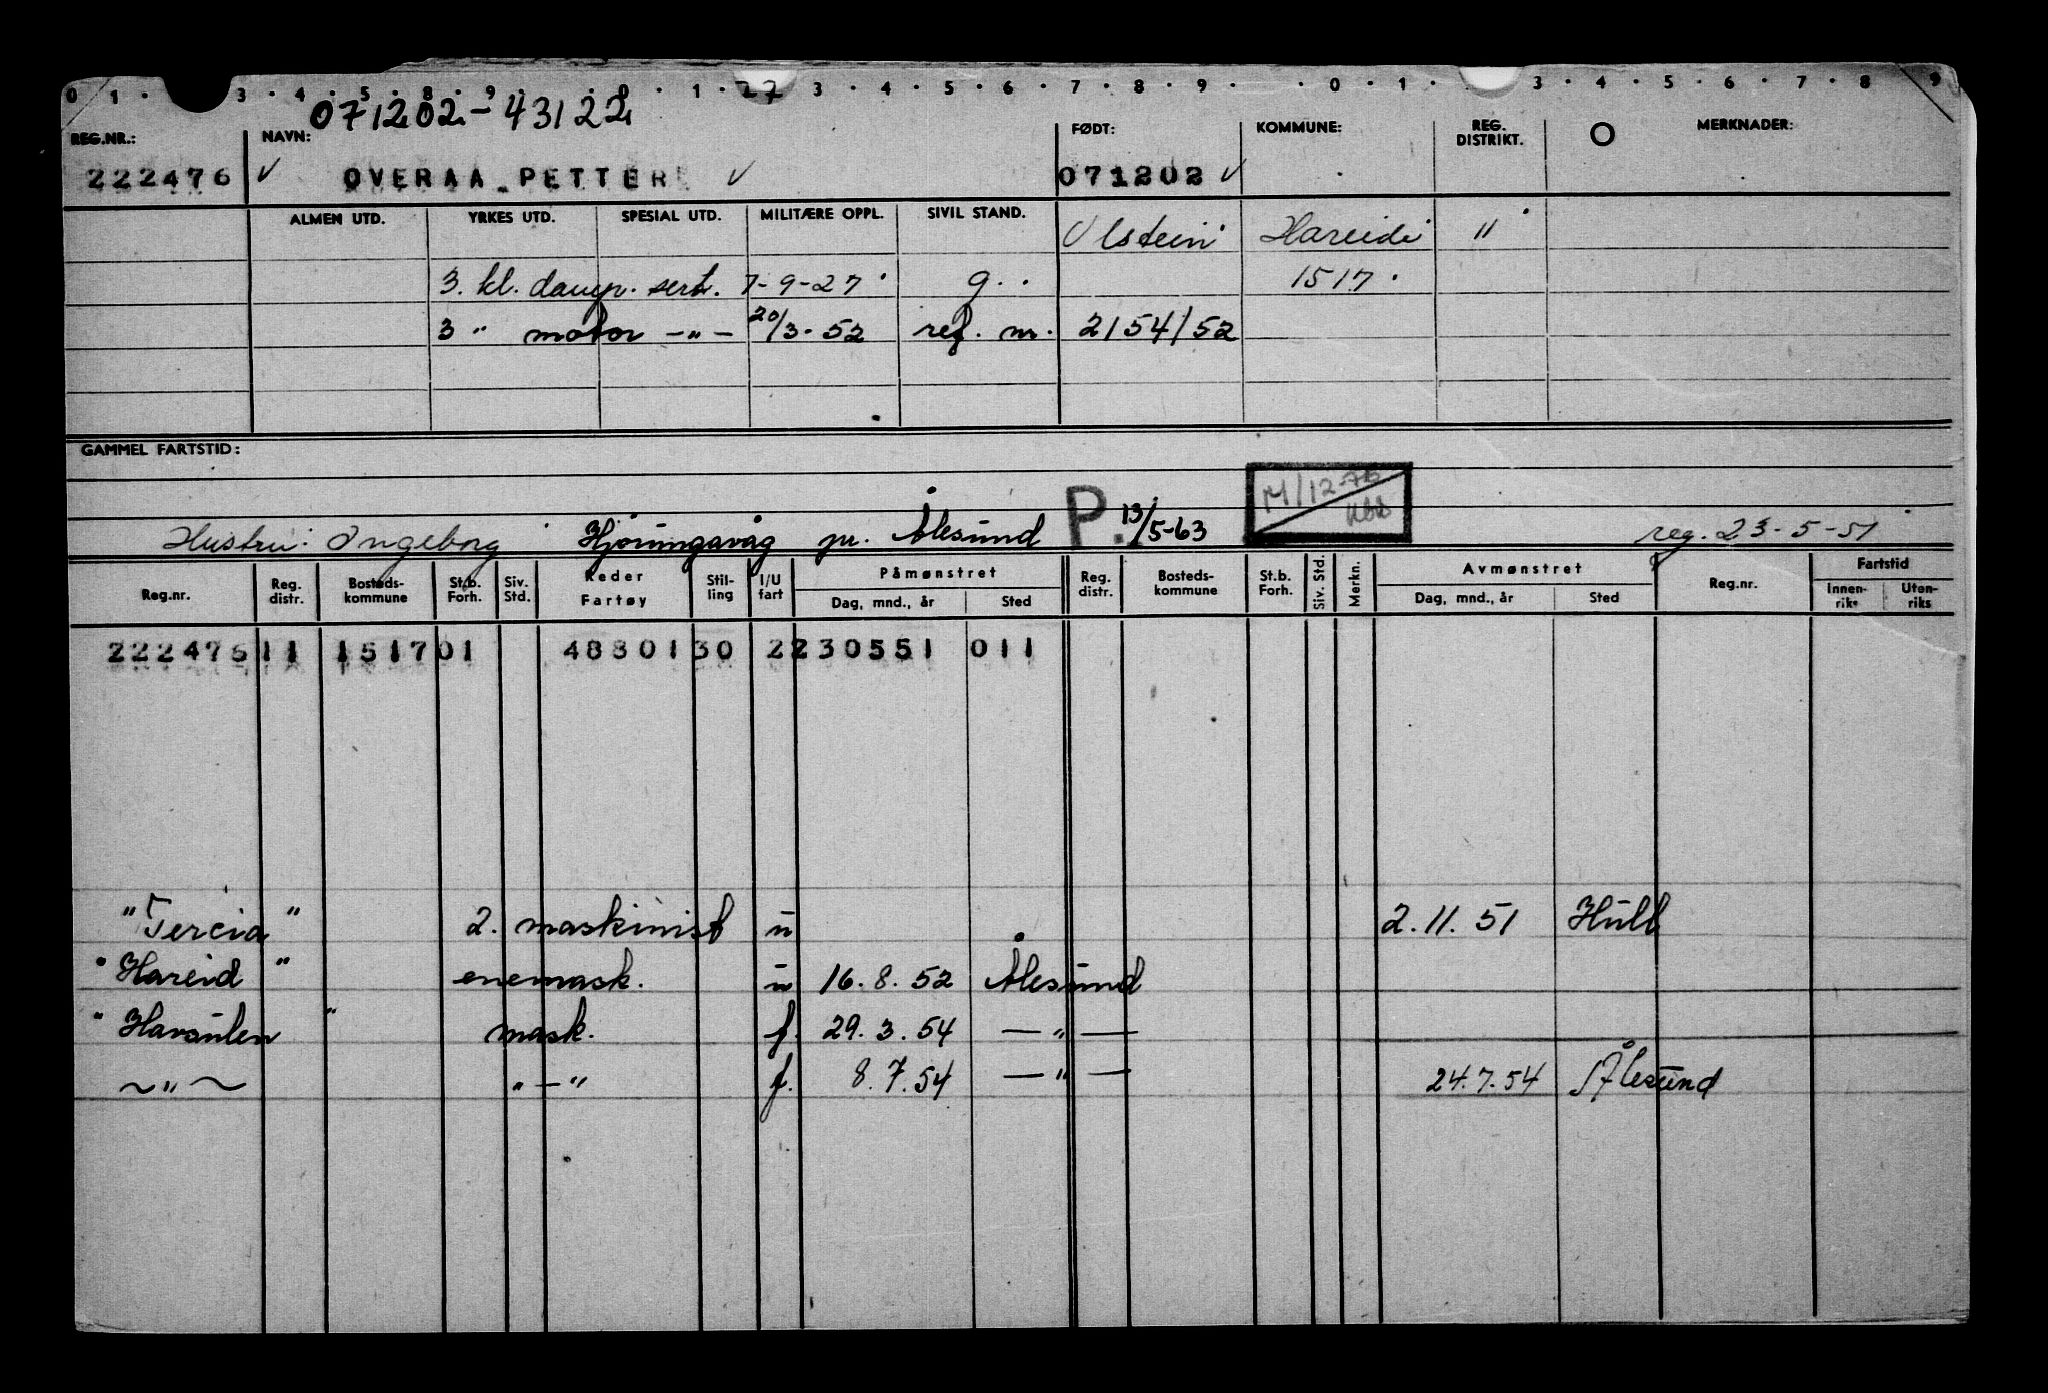 0 1 · 3 · 4 · 5 · 8 · 9 · 0 · 1 · 27 3 · 4 · 5 · 6 · 7 · 8 · 9 · · 0 · 1 · 3 · 4 · 5 · 6 · 7 · 8 9
071202-43122
REG.NR.: NAVN: FØDT: KOMMUNE: REG. DISTRIKT. O MERKNADER:
222476 √ OVERAA PETTER √ 071202 √
ALMEN UTD. YRKES UTD. SPESIAL UTD. MILITÆRE OPPL. SIVIL STAND. Ulstein Hareide 11
3. kl. damp. sert. 7-9-27 g. 1517
3 " motor -"- 20/3-52 ref. nr. 2154/52
GAMMEL FARTSTID:
M/12-7
Hustru: Ingeborg Hjørungavåg pr. Ålesund P. 13/5-63 reg. 23-5-51
Reg.nr. Reg. distr. Bosteds- kommune St.b. Forh. Siv. Std. Reder Fartøy Stil- ling I/U fart Påmønstret Dag, mnd., år Sted Reg. distr. Bosteds- kommune St.b. Forh. Siv. Std. Merkn. Avmønstret Dag, mnd., år Sted Reg.nr. Fartstid Innen- riks Uten- riks
222476 11 1517 01 48301 30 2 230551 011
"Tercia" 2. maskinist u 2.11.51 Hull
"Hareid" enemask. u 16.8.52 Ålesund
"Havsulen" mask. f. 29.3.54 -"-
~"~ "-" f. 8.7.54 -"- 24.7.54 Ålesund